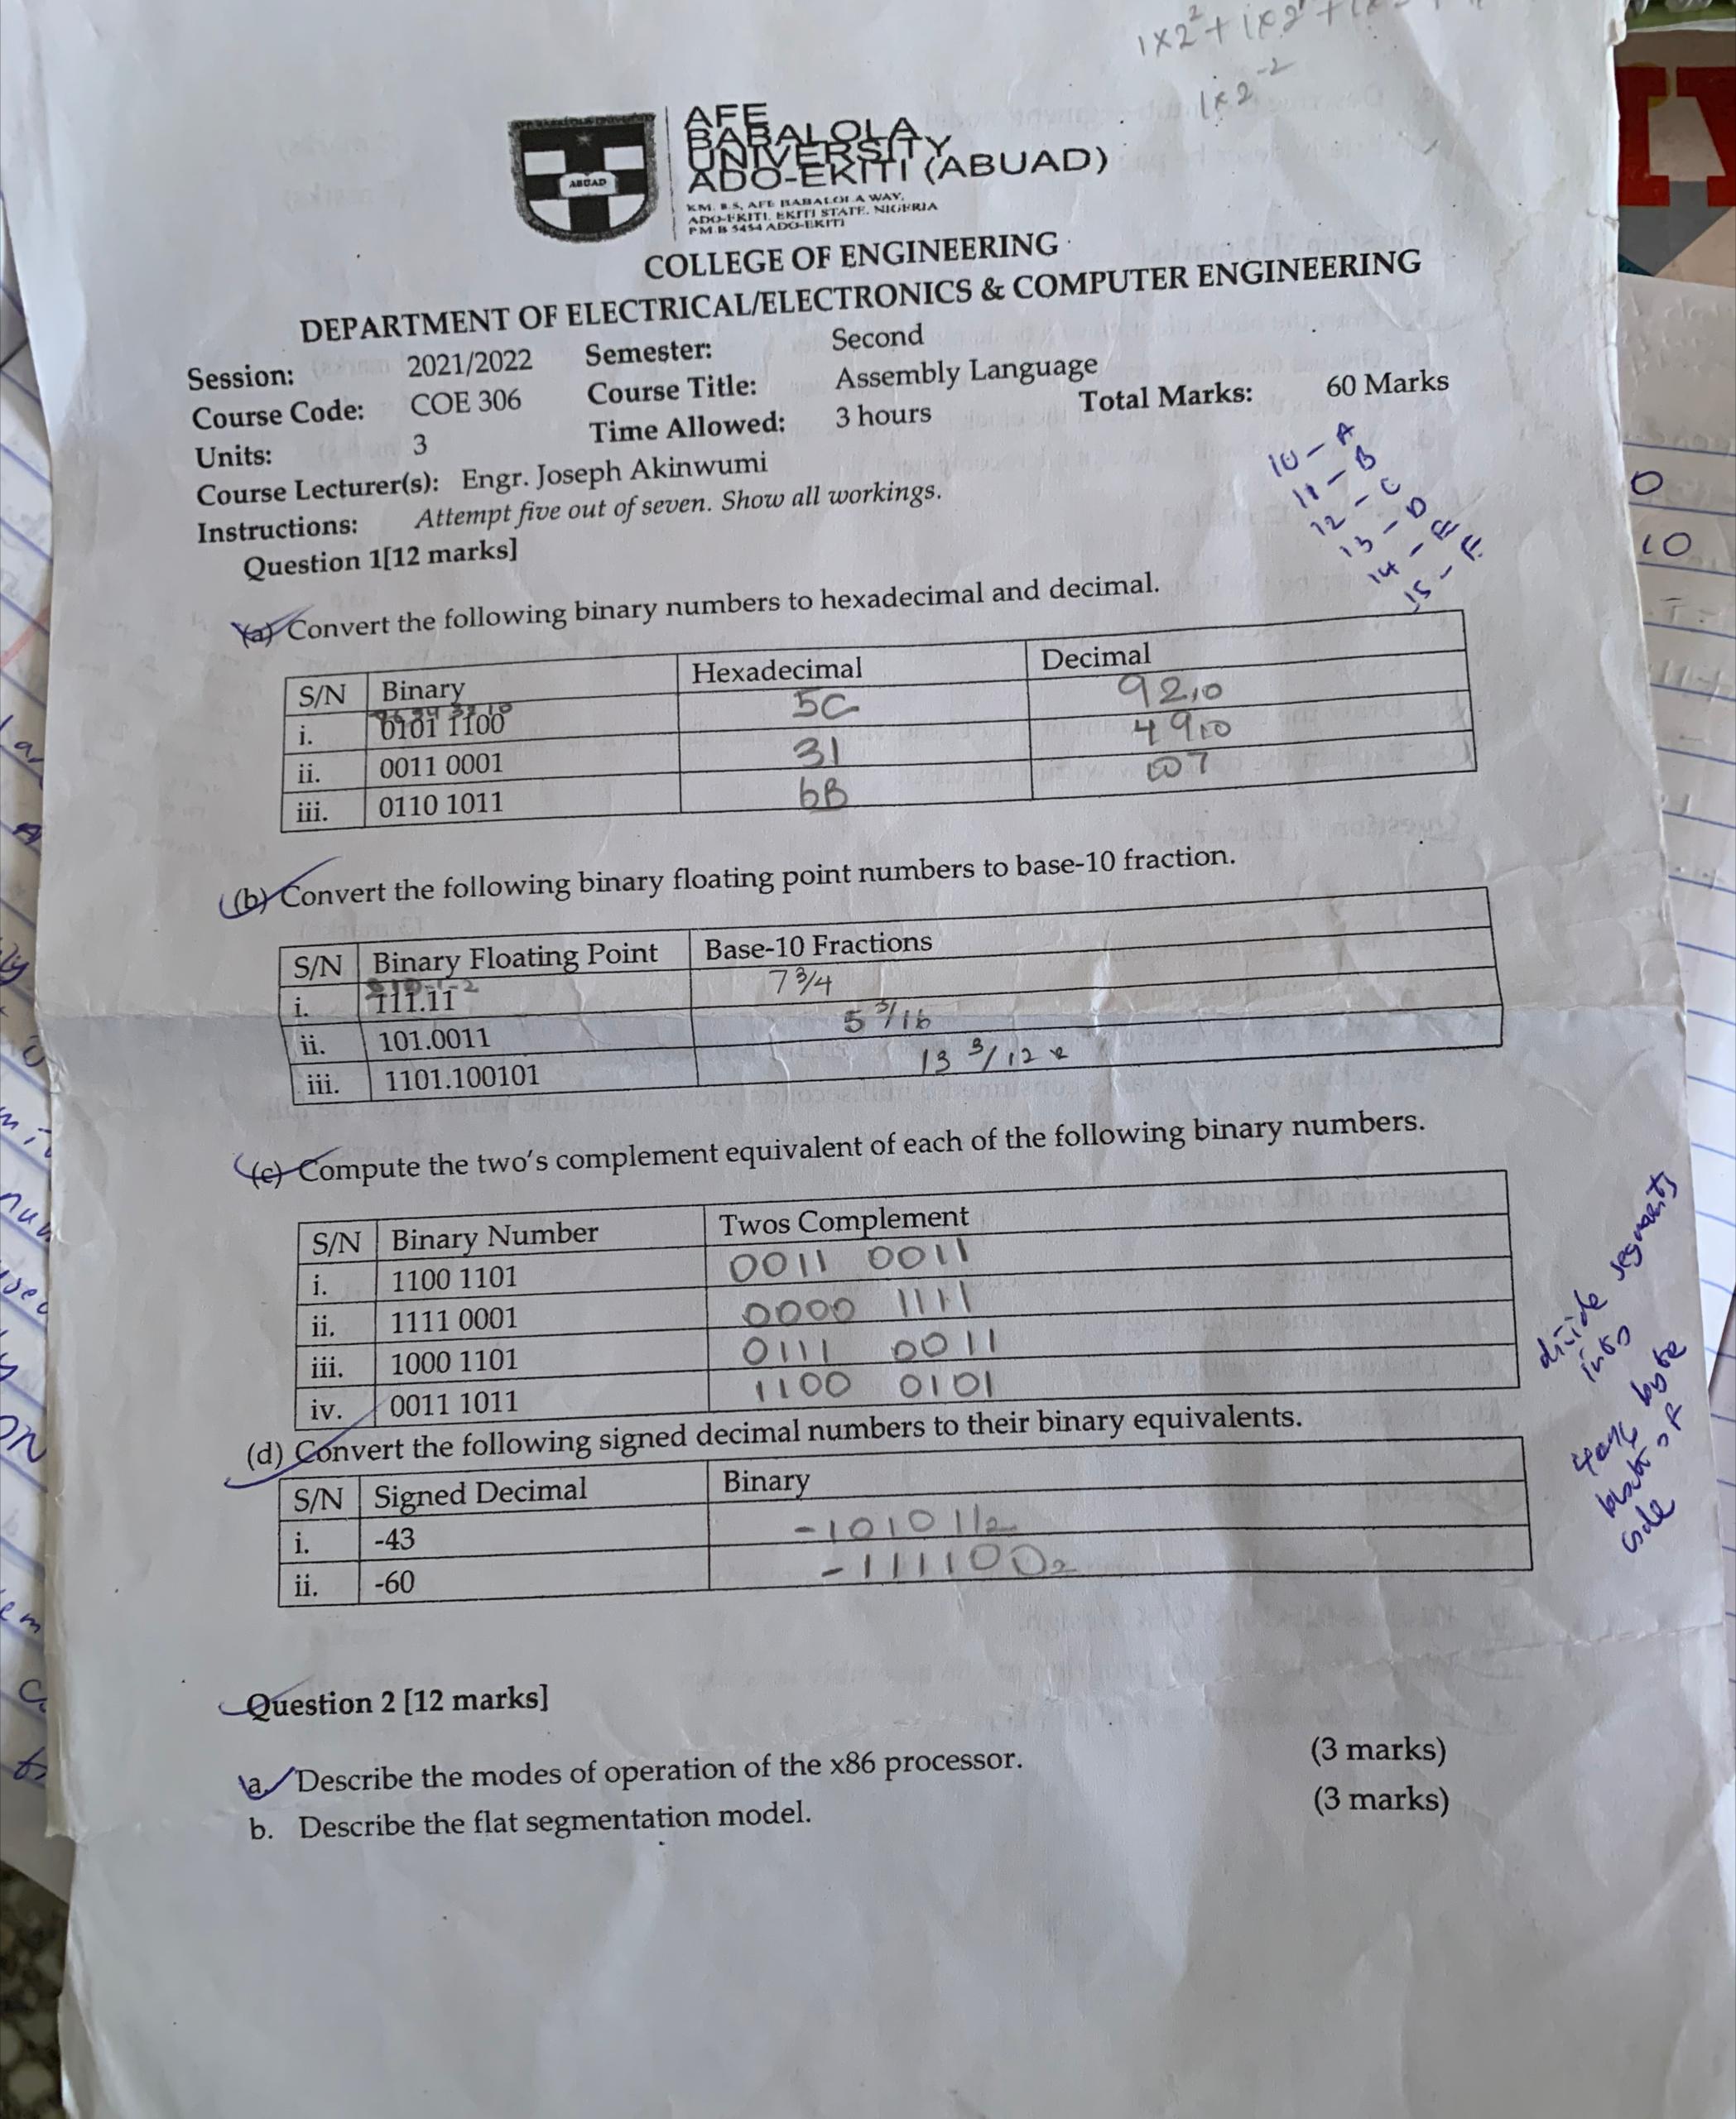 1×2² + 1×2¹
1×2⁻²
AFE
BABALOLA
UNIVERSITY
ADO-EKITI (ABUAD)
ABUAD
KM. 8.5, AFE BABALOLA WAY,
ADO-EKITI, EKITI STATE, NIGERIA
P.M.B 5454 ADO-EKITI
COLLEGE OF ENGINEERING
DEPARTMENT OF ELECTRICAL/ELECTRONICS & COMPUTER ENGINEERING
Session: 2021/2022 Semester: Second
Course Code: COE 306 Course Title: Assembly Language
Units: 3 Time Allowed: 3 hours Total Marks: 60 Marks
Course Lecturer(s): Engr. Joseph Akinwumi
Instructions: Attempt five out of seven. Show all workings.
10 – A
11 – B
12 – C
13 – D
14 – E
15 – F
Question 1[12 marks]
(a) Convert the following binary numbers to hexadecimal and decimal.
S/N Binary Hexadecimal Decimal
i. 0101 1100 5C 92₁₀
ii. 0011 0001 31 49₁₀
iii. 0110 1011 6B 107
(b) Convert the following binary floating point numbers to base-10 fraction.
S/N Binary Floating Point Base-10 Fractions
i. 111.11 7 3/4
ii. 101.0011 5 3/16
iii. 1101.100101 13 3/12
(c) Compute the two's complement equivalent of each of the following binary numbers.
S/N Binary Number Twos Complement
i. 1100 1101 0011 0011
ii. 1111 0001 0000 1111
iii. 1000 1101 0111 0011
iv. 0011 1011 1100 0101
divide into segments
(d) Convert the following signed decimal numbers to their binary equivalents.
S/N Signed Decimal Binary
i. -43 -101011₂
ii. -60 -111100₂
Question 2 [12 marks]
a. Describe the modes of operation of the x86 processor. (3 marks)
b. Describe the flat segmentation model. (3 marks)
0
10